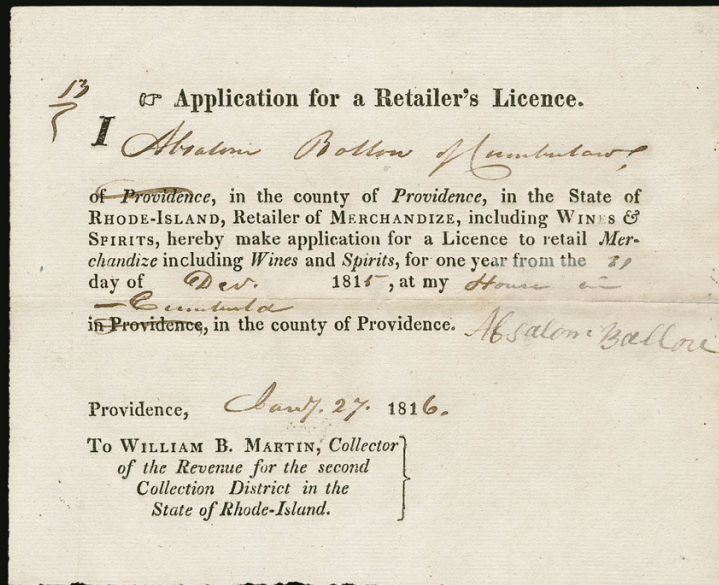 13
☞ Application for a Retailer's Licence.
I Absalom Ballou of Cumberland
of Providence, in the county of Providence, in the State of
RHODE-ISLAND, Retailer of MERCHANDIZE, including WINES &
SPIRITS, hereby make application for a Licence to retail Mer-
chandize including Wines and Spirits, for one year from the 31
day of Dec. 1815, at my House in
Cumberld
in Providence, in the county of Providence. Absalom Ballou
Providence, Jany. 27. 1816.
To WILLIAM B. MARTIN, Collector
of the Revenue for the second
Collection District in the
State of Rhode-Island.